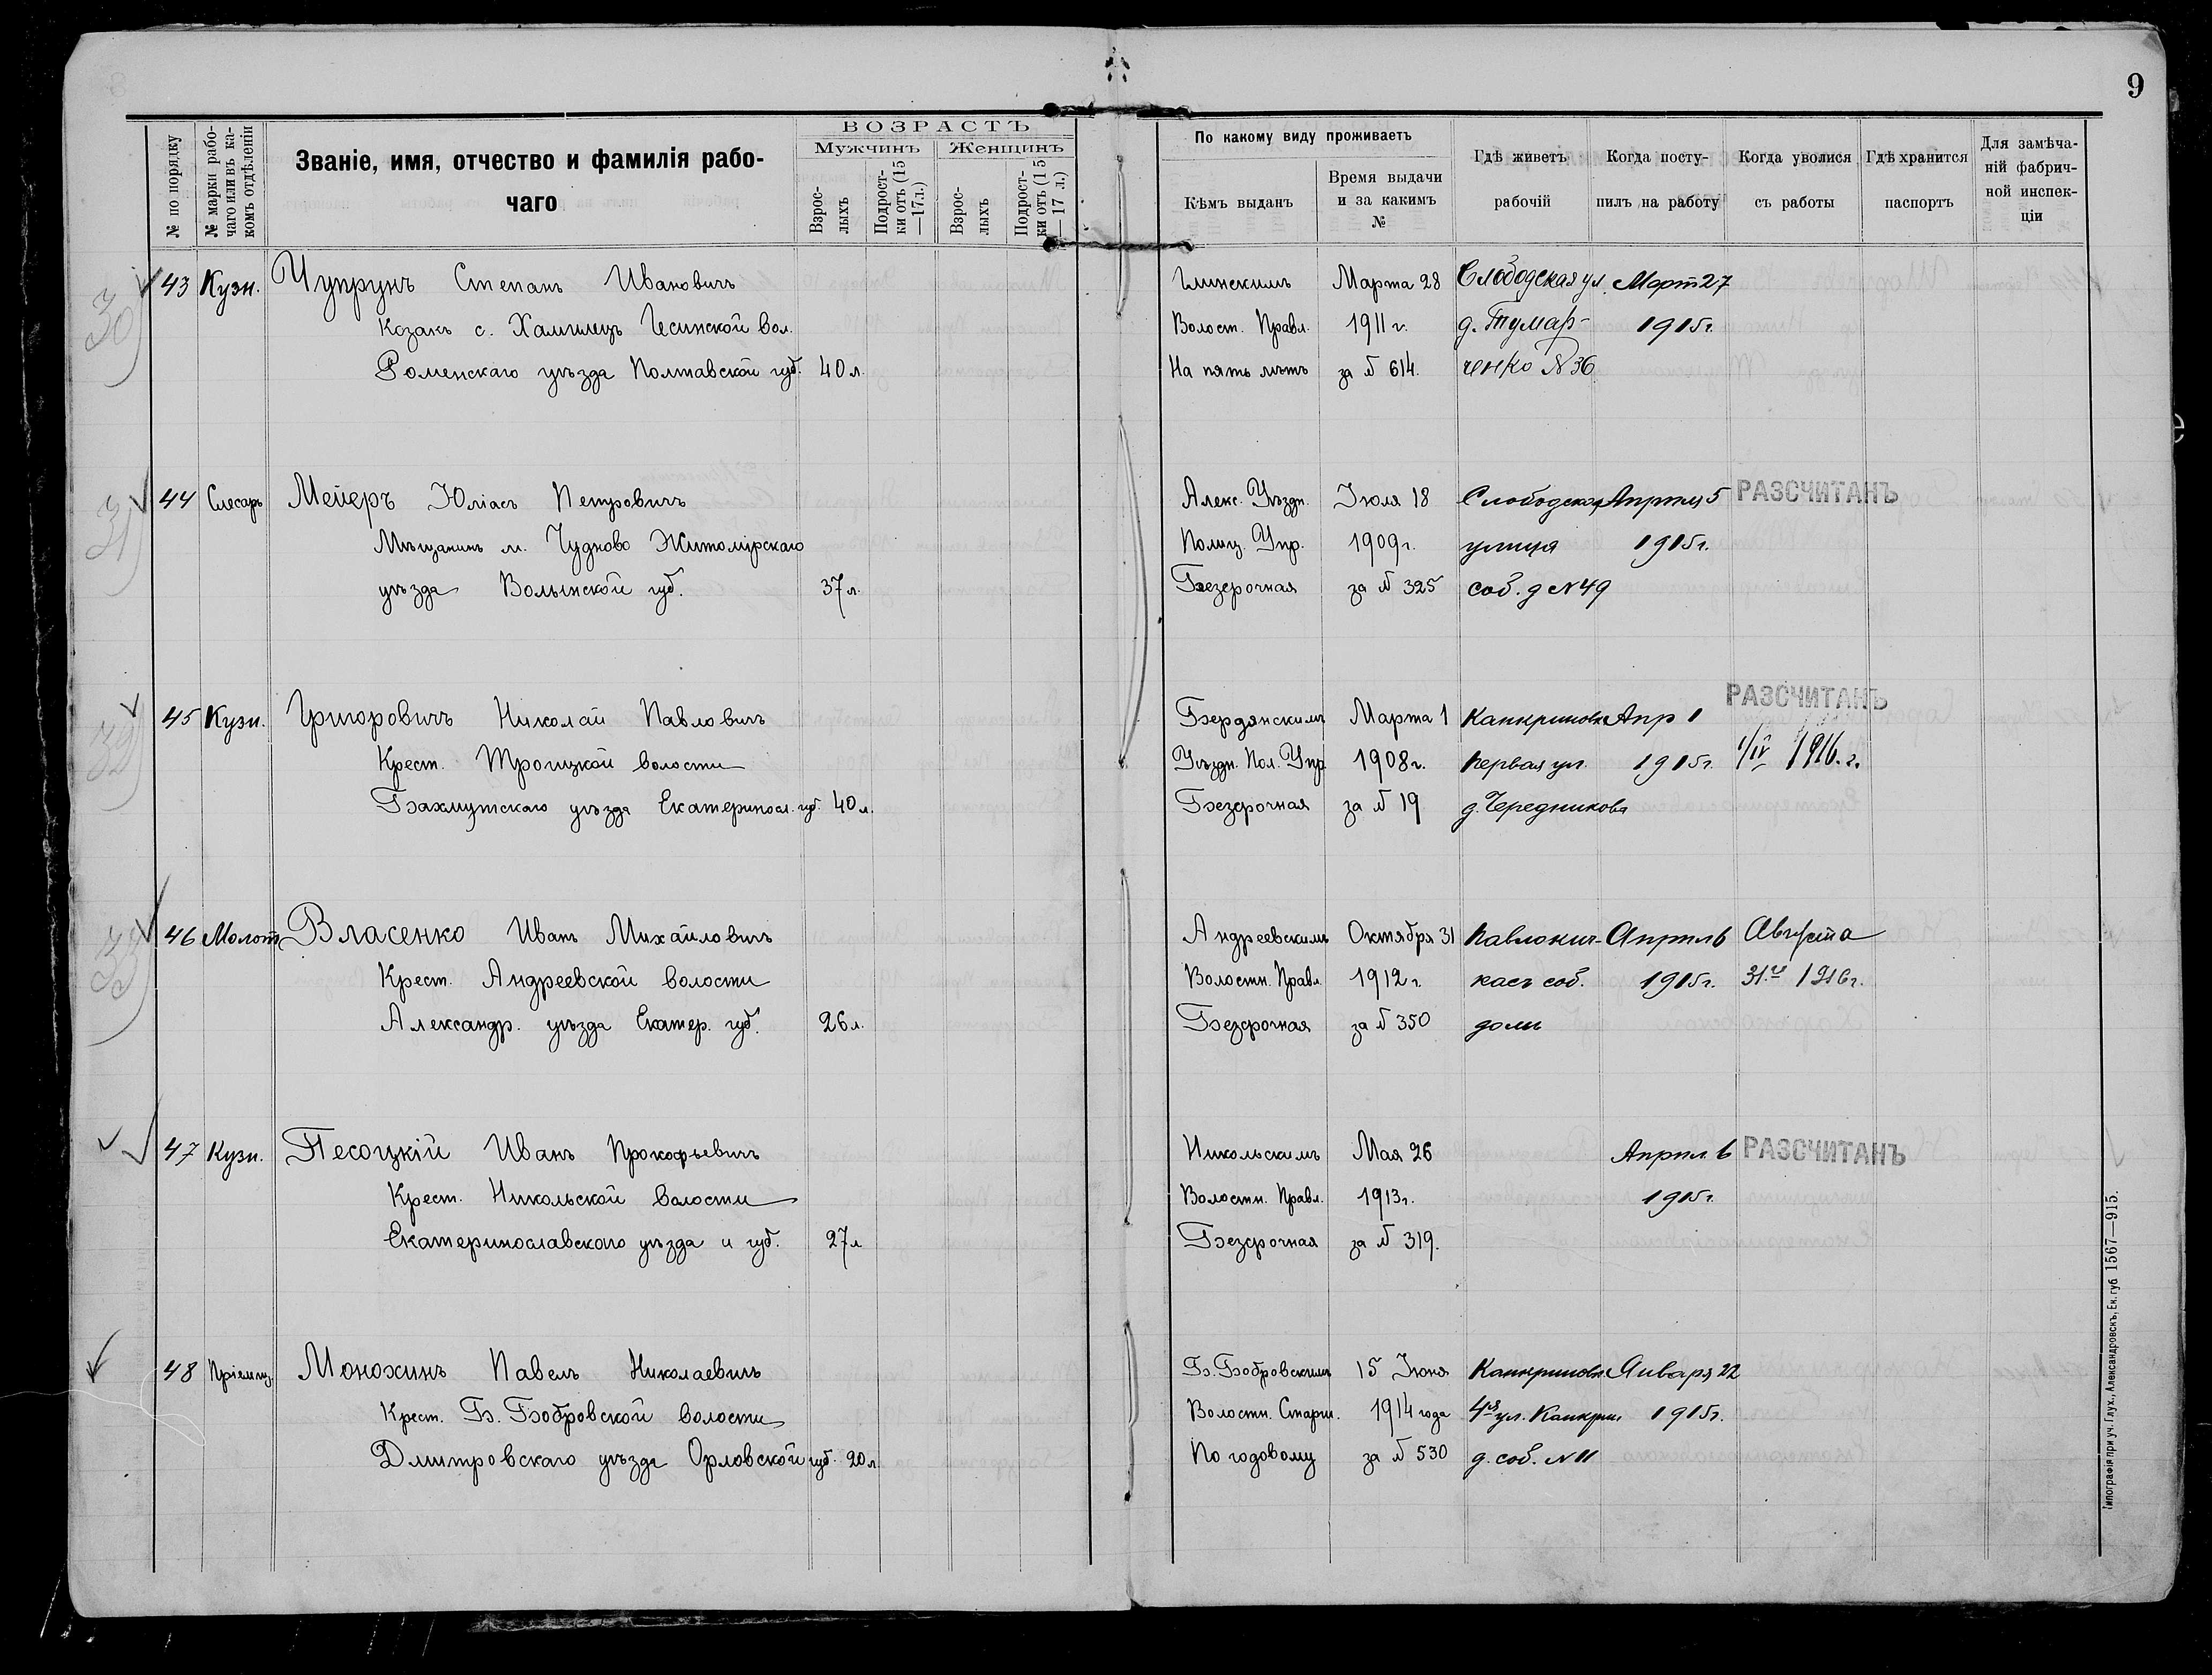 9
№ по порядку
№ марки рабо-
чаго или въ ка-
комъ отдѣленіи
Званіе, имя, отчество и фамилія рабо-
чаго
ВОЗРАСТЪ
Мужчинъ
Женщинъ
Взрос-
лыхъ
Подрост-
ки отъ (15
—17л.)
Взрос-
лыхъ
Подрост-
ки отъ (15
—17 л.)
По какому виду проживаетъ
Кѣмъ выданъ
Время выдачи
и за какимъ
№
Гдѣ живетъ
рабочій
Когда посту-
пилъ на работу
Когда уволися
съ работы
Гдѣ хранится
паспортъ
Для замѣча-
ній фабрич-
ной инспек-
ціи
30
43 Кузн. Чупрунъ Степанъ Ивановичъ
Козакъ с. Вол.
Роменскаго уѣзда Полтавской губ. 40 л.
Глинскимъ Марта 28 Слободская ул. Март 27
Волост. Правл. 1911 г. д. Тумар- 1915г.
На пять лѣтъ за № 614. ченко №36
31
44 Слесарь Мейеръ Юліасъ Петровичъ
Мѣщанинъ м. Чудново Житомірскаго
уѣзда Волынской губ. 37 л.
Алекс. Уѣздн. Іюля 18 Слободская Апрѣля 5 РАЗСЧИТАНЪ
Полиц. Упр. 1909 г. улица 1915г.
Безсрочная за № 325 соб. д №49
32
45 Кузн. Григоровичъ Николай Павловичъ
Крест. Троицкой волости
Бахмутскаго уѣзда Екатериносл. губ. 40 л.
Бердянскимъ Марта 1 Канкриновка Апр 1 РАЗСЧИТАНЪ
Уѣздн. Пол. Упр. 1908 г. первая ул. 1915г. 1/IV 1916.г.
Безсрочная за № 19 д. Чередникова
33
46 Молот. Власенко Иванъ Михайловичъ
Крест. Андреевской волости
Александр. уѣзда Екатер. губ. 26 л.
Андреевскимъ Октября 31 Павлокич- Апрѣль 6 Августа
Волостн. Правл. 1912 г. касъ соб. 1915г. 31.го 1916г.
Безсрочная за № 350 домъ
47 Кузн. Песоцкій Иванъ Прокофьевичъ
Крест. Никольской волости
Екатеринославскаго уѣзда и губ. 27 л
Никольскимъ Мая 26 Апрѣль 6 РАЗСЧИТАНЪ
Волостн. Правл. 1913 г. 1915г.
Безсрочная за № 319.
48 Пріемщ. Монохинъ Павелъ Николаевичъ
Крест. Б. Бобровской волости
Дмитровскаго уѣзда Орловской губ. 20 л.
Б. Бобровскимъ 15 Іюня Канкриновк. Января 22
Волостн. Старш. 1914 года 4я ул. Канкрин. 1915г.
По годовому за № 530 д. соб. №11
Типографія при уч. Глух., Александровскъ, Ек. губ 1567—915.